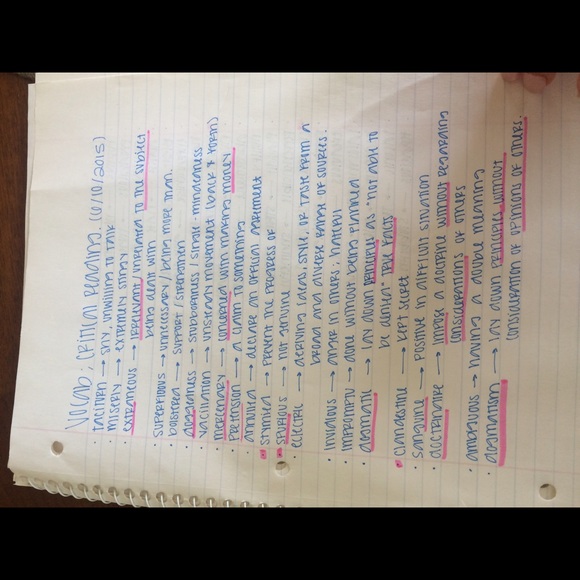 Vocab: Critical Reading. (6/10/2015)
• taciturn → shy, unwilling to talk
• miserly → extremely stingy
• extraneous → irrelevant/unrelated to the subject
being dealt with
• superfluous → unnecessary/being more than.
• bolstered → support/strengthen
• doggedness → stubbornness/single mindedness
• vacillation → unsteady movement (back & forth)
• mercenary → concerned with making money
• pretension → a claim to something
• annulled → declare an official agreement
• stymied → prevent the progress of
• spurious → not genuine
• eclectic → deriving ideas, style, or taste from a
broad and diverse range of sources.
• invidious → anger in others; hateful
• impromptu → done without being planned
• dogmatic → lay down principles as "not able to
be denied" true facts
• clandestine → kept secret
• sanguine → positive in difficult situation
• doctrinaire → impose a doctrine without regarding
considerations of others
• ambiguous → having a double meaning
• dogmatism → lay down principles without
consideration of opinions of others.